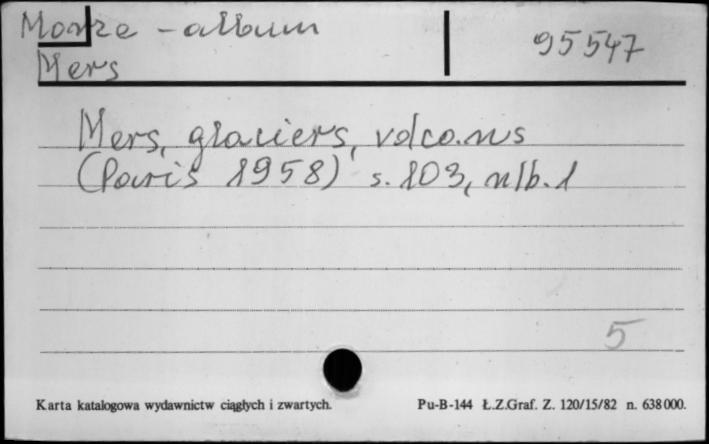 Morze - album
95547
Mers
Mers, glaciers, volcans
(Paris 1958) s. 103, nlb. 1
5
Karta katalogowa wydawnictw ciągłych i zwartych.
Pu-B-144 Ł.Z.Graf. Z. 120/15/82 n. 638 000.